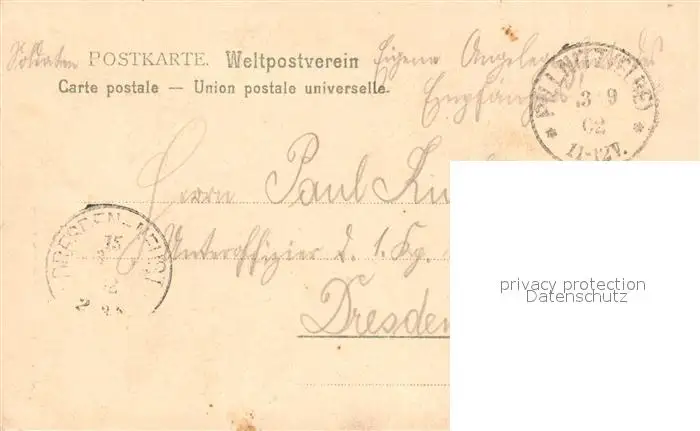 Soldaten POSTKARTE. Weltpostverein Eigene Angele
Carte postale — Union postale universelle.
Empfäng
PILLNITZ (ELBE)
3 9
02
11-12V.
Herrn Paul
Unteroffizier d. 1. Kp.
DRESDEN-NEUST
Dresden
privacy protection
Datenschutz